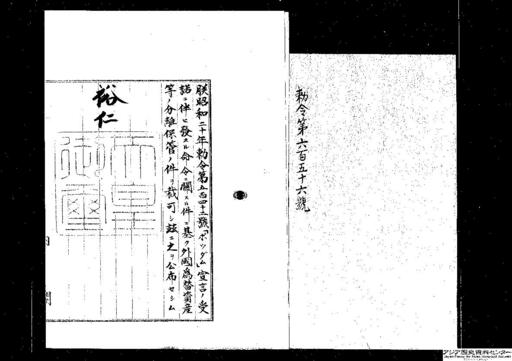 勅令第六百五十六號
朕昭和二十年勅令第五百四十二號「ポツダム」宣言ノ受
諾ニ伴ヒ發スル命令ニ關スル件ニ基ク外國爲替資產
等ノ分離保管ノ件ヲ裁可シ玆ニ之ヲ公布セシム
裕仁
天皇
御璽
内閣
アジア歴史資料センター
Japan Center for Asian Historical Records